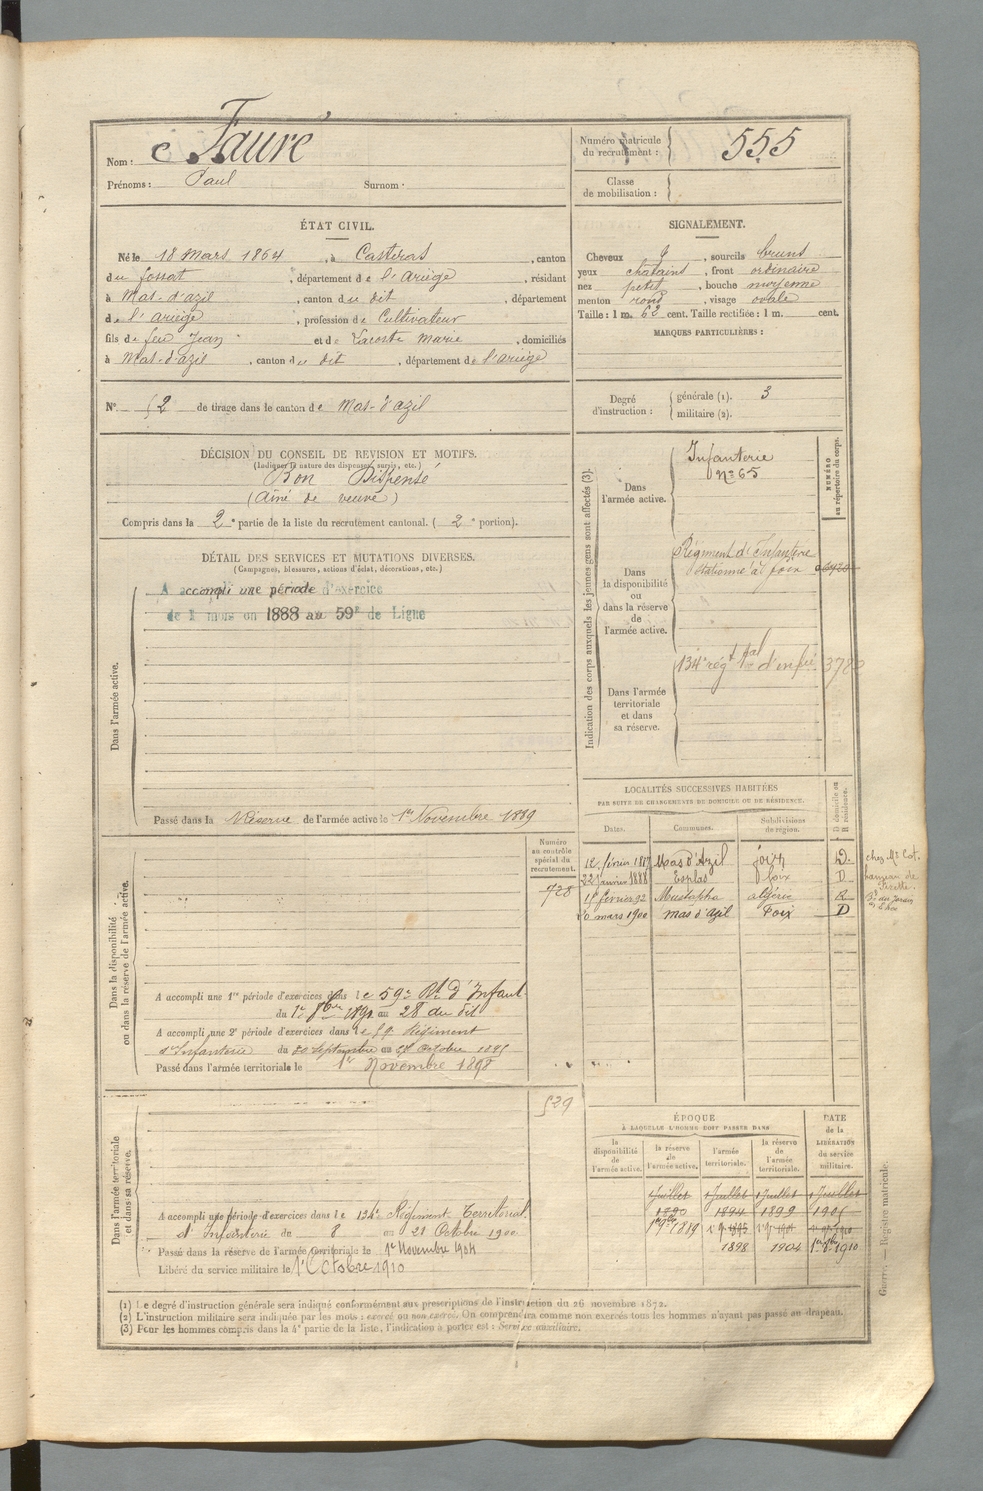 Nom : Fauré
Prénoms : Paul Surnom :
Numéro matricule du recrutement : 555
Classe de mobilisation :
ÉTAT CIVIL.
Né le 18 Mars 1864, à Casteras, canton
du fossat, département de l'Ariège, résidant
à Mas-d'azil, canton du dit, département
de l'ariège, profession de Cultivateur
fils de feu Jean et de Lacoste Marie, domiciliés
à Mas-d'azil, canton du dit, département de l'ariège
SIGNALEMENT.
Cheveux, sourcils bruns
yeux châtains, front ordinaire
nez petit, bouche moyenne
menton rond, visage ovale
Taille : 1 m. 62 cent. Taille rectifiée : 1 m. cent.
MARQUES PARTICULIÈRES :
N° 52 de tirage dans le canton de Mas-d'azil
Degré d'instruction : générale (1). 3
militaire (2).
DÉCISION DU CONSEIL DE REVISION ET MOTIFS.
(Indiquer la nature des dispenses, sursis, etc.)
Bon Dispensé
(Aîné de veuve)
Compris dans la 2e partie de la liste du recrutement cantonal. (2e portion).
DÉTAIL DES SERVICES ET MUTATIONS DIVERSES.
(Campagnes, blessures, actions d'éclat, décorations, etc.)
Dans l'armée active.
A accompli une période d'exercice
de 1 mois en 1888 au 59e de Ligne
Passé dans la Réserve de l'armée active le 1er Novembre 1889
Indication des corps auxquels les jeunes gens sont affectés (3).
NUMÉRO au répertoire du corps.
Dans l'armée active.
Infanterie
N° 65
Dans la disponibilité ou dans la réserve de l'armée active.
Régiment d'Infanterie
stationné à foix
Dans l'armée territoriale et dans sa réserve.
134e régt tal d'infie 3780
LOCALITÉS SUCCESSIVES HABITÉES
PAR SUITE DE CHANGEMENTS DE DOMICILE OU DE RÉSIDENCE.
Dates. Communes. Subdivisions de région. D domicile ou R résidence.
12 février 1887 Mas d'Azil foix D.
22 janvier 1888 Esplas foix D
1er février 92 Mustapha algérie R
10 mars 1900 mas d'Azil Foix D
Dans la disponibilité ou dans la réserve de l'armée active.
Numéro au contrôle spécial du recrutement.
728
A accompli une 1re période d'exercices dans le 59e Rt d'Infant
du 1er 8bre 1891 au 28 du dit
A accompli une 2e période d'exercices dans le 59e Régiment
d'Infanterie du 30 Septembre au 27 Octobre 1895
Passé dans l'armée territoriale le 1er Novembre 1898
Dans l'armée territoriale et dans sa réserve.
529
A accompli une période d'exercices dans le 134e Régiment Territorial
d'Infanterie du 8 au 21 Octobre 1900
Passé dans la réserve de l'armée territoriale le 1er Novembre 1904
Libéré du service militaire le 1er Octobre 1910
ÉPOQUE
À LAQUELLE L'HOMME DOIT PASSER DANS
la disponibilité de l'armée active. la réserve de l'armée active. l'armée territoriale. la réserve de l'armée territoriale.
DATE de la LIBÉRATION du service militaire.
1 Juillet 1 Juillet 1 Juillet 1 Juillet
1890 1894 1899 1905
1er 9bre 1889
1898 1904 1er 8bre 1910
(1) Le degré d'instruction générale sera indiqué conformément aux prescriptions de l'instruction du 26 novembre 1872.
(2) L'instruction militaire sera indiquée par les mots : exercé ou non exercé. On comprendra comme non exercés tous les hommes n'ayant pas passé au drapeau.
(3) Pour les hommes compris dans la 4e partie de la liste, l'indication à porter est : Service auxiliaire.
Guerre. — Registre matricule.